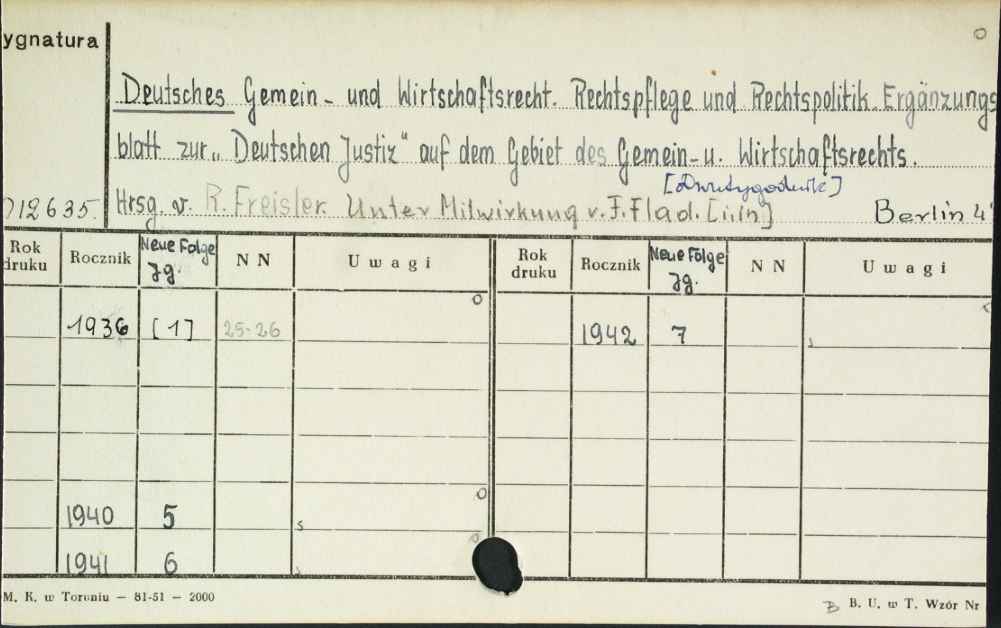 ygnatura
Deutsches Gemein- und Wirtschaftsrecht. Rechtspflege und Rechtspolitik. Ergänzungs
blatt zur „Deutschen Justiz" auf dem Gebiet des Gemein- u. Wirtschaftsrechts.
[Dwutygodnik]
012635. Hrsg. v. R. Freisler. Unter Mitwirkung v. F. Flad. [i.in] Berlin 4°
Rok druku Rocznik Neue Folge Jg. NN Uwagi Rok druku Rocznik Neue Folge Jg. NN Uwagi
1936 [1] 25-26 1942 7
1940 5
1941 6
M. K. w Toruniu — 81-51 — 2000 B. U. w T. Wzór Nr